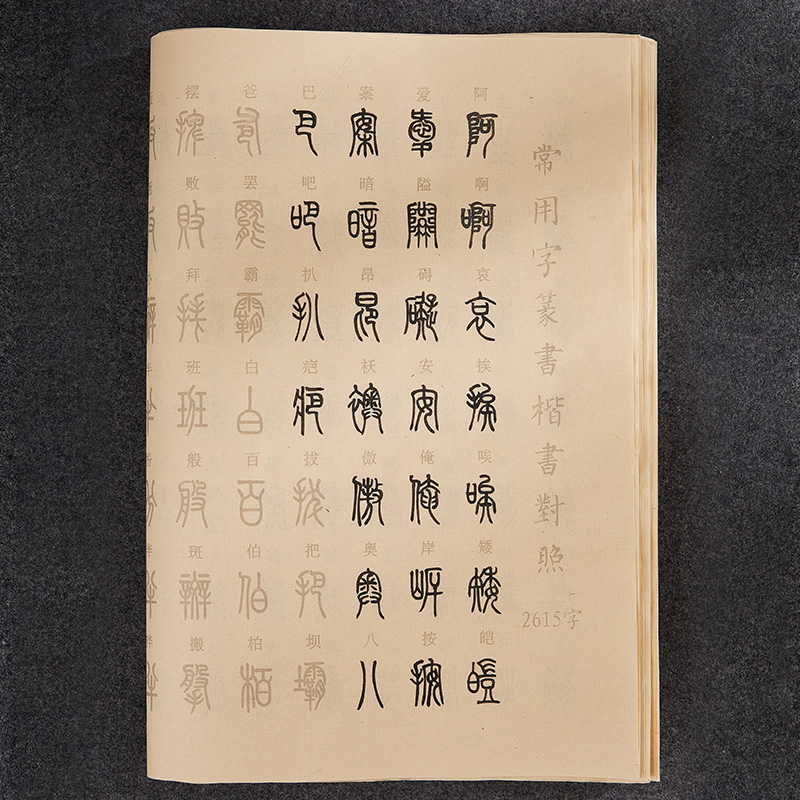 常用字篆書楷書對照
2615字
阿啊哀挨唉矮皑
爱隘碍安俺岸按
案暗昂袄傲奥八
巴吧扒疤拔把坝
爸罢霸白百伯柏
摆败拜班般斑搬